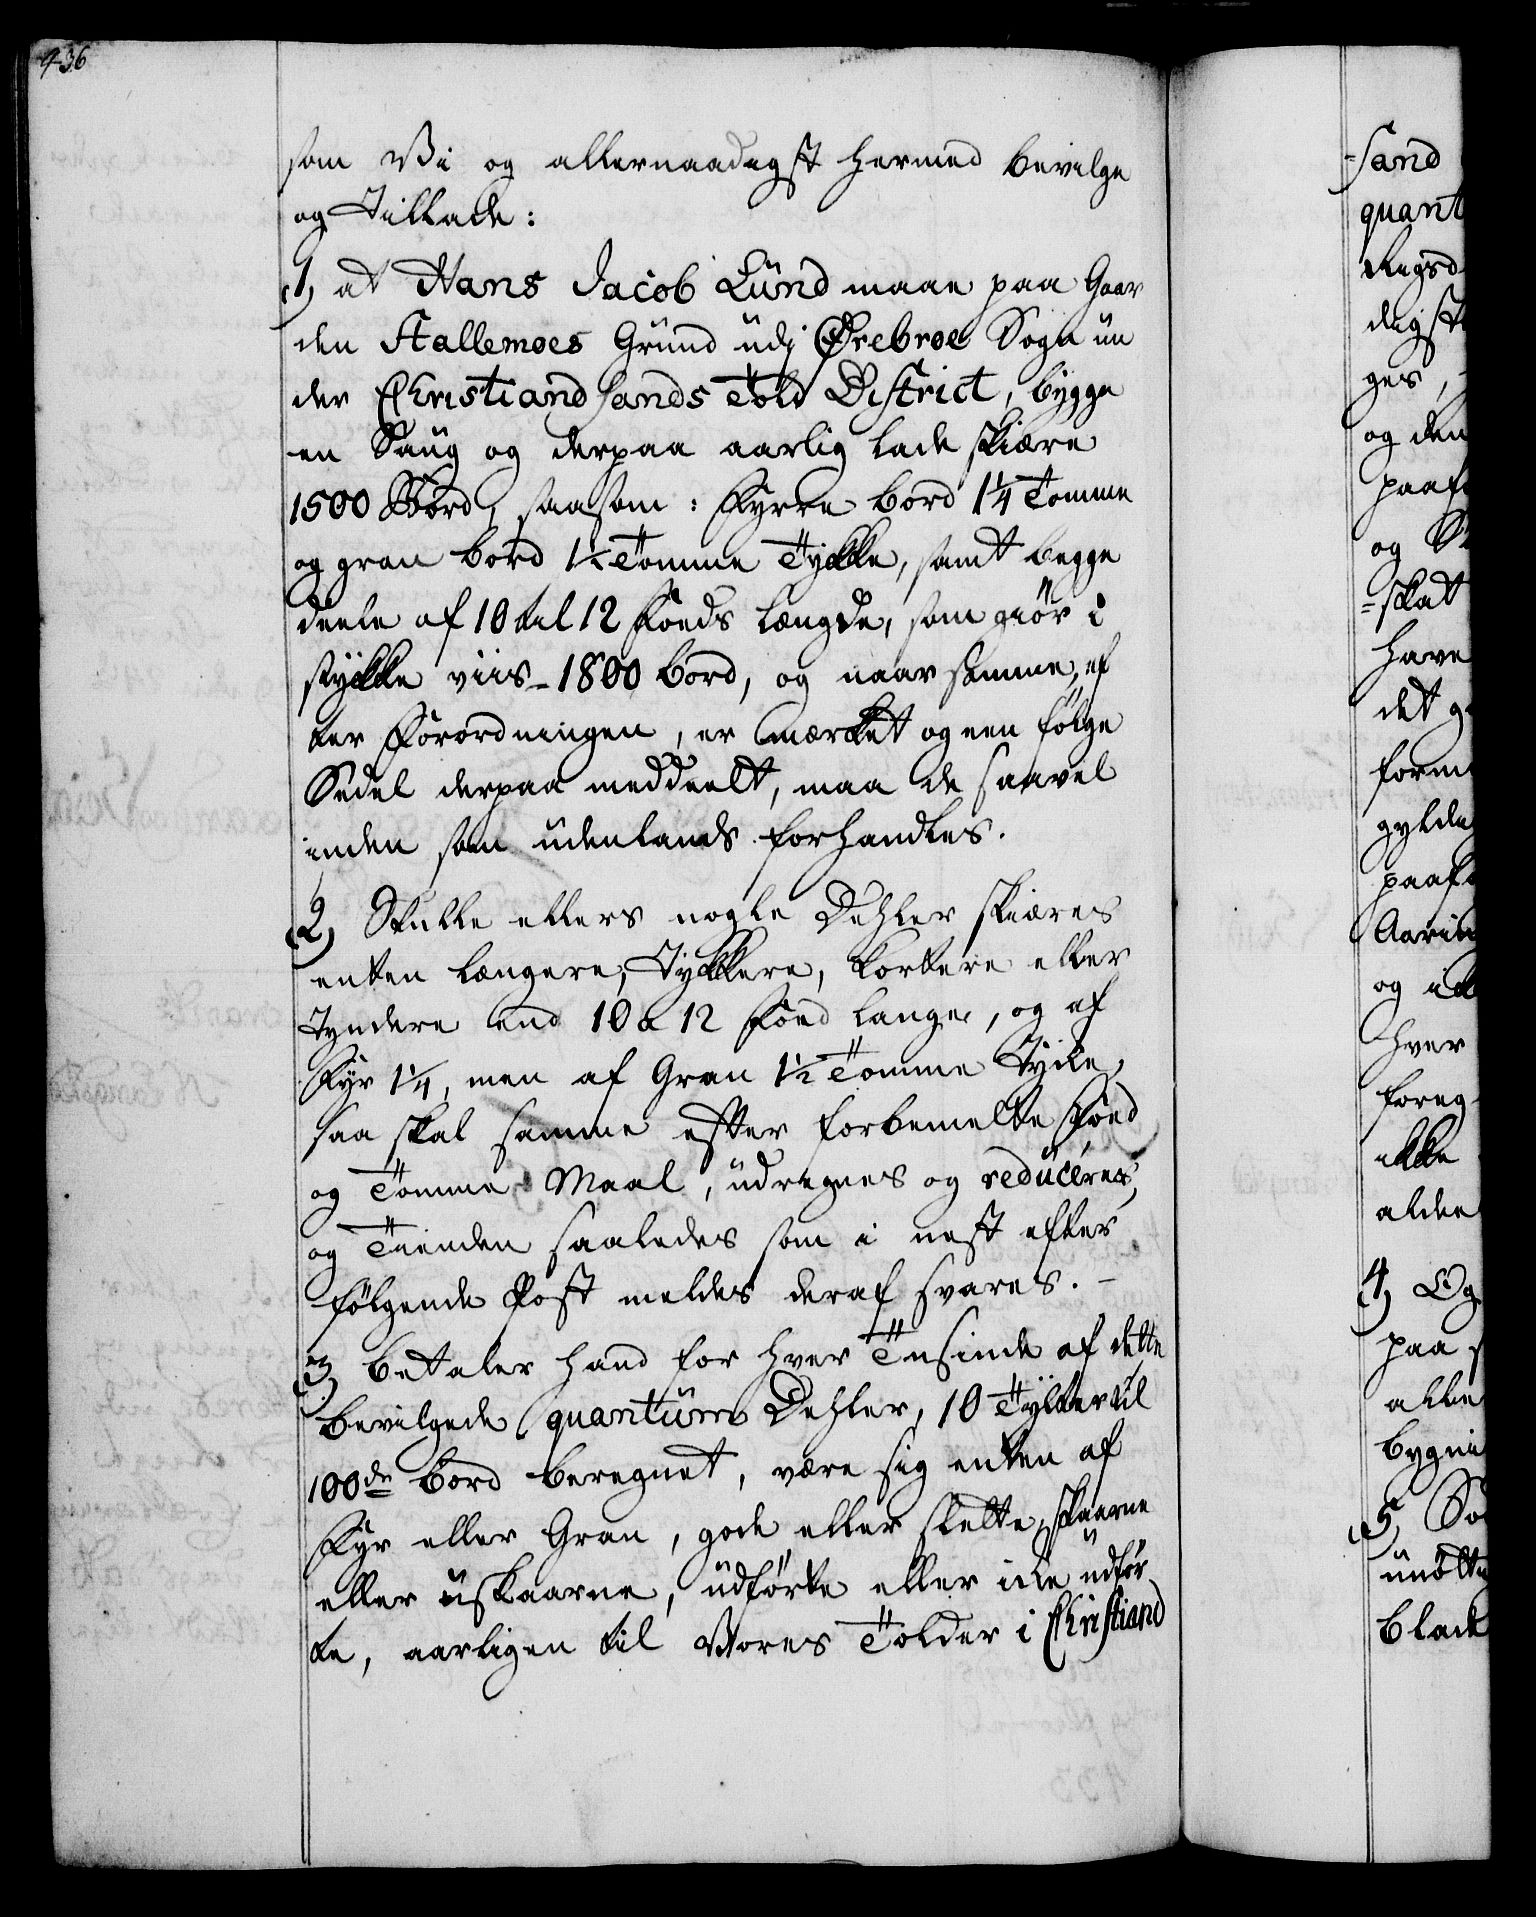 436
som Vi og allernaadigst hermed bevilge
og Tillade:
1, at Hans Jacob Lünd maae paa Gaar
den Stallemoes Gründ üdj Ørebroe Sogn ün
der Christiandsands Told District, bÿgge
en Saüg og derpaa aarlig lade skiære
1500 Bord, saasom: Fyrre bord 1¼ Tomme
og gran bord 1½ Tomme Tÿkke, samt begge
deele af 10 til 12 Foeds længde, som giør i
stÿkke viis 1800 bord, og naar samme, ef
ter Forordningen, er mærket og een følge
Sedel derpaa meddeelt, maa de saavel
inden som üdenlands forhandles.
2, Skulle ellers nogle Dehler skiæres
enten længere, Tykkere, kortere eller
Tyndere end 10 a 12 Foed lange, og af
Fyr 1¼, men af Gran 1½ Tomme Tycke,
saa skal samme efter forbemelte Foed
og Tomme Maal, üdregnes og reducéres,
og Tienden saaledes som i nest efter
følgende Post meldes deraf svares.
3, betaler hand for hver Tusinde af dette
bevilgede quantüm Dehler, 10 Tylter til
100de bord beregnet, være sig enten af
Fyr eller Gran, gode eller slette, skaarne
eller üskaarne, üdførte eller icke üdfør
te, aarligen til Vores Tolder i Christiand
=sand
quant
Rigsd
digst
ges,
og den
paaf
og
=skat
have
det g
form
gylde
paaf
Aarin
og
hver
foreg
ikke
alder
4, Og
paa
alle
bygni
5, So
unøtt
blad